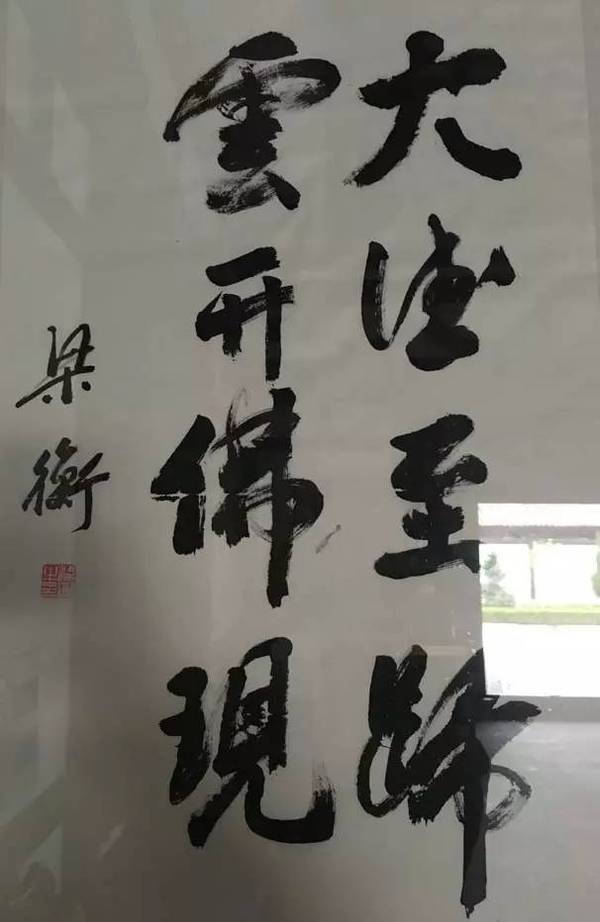 大德至歸
雲開佛現
梁衡